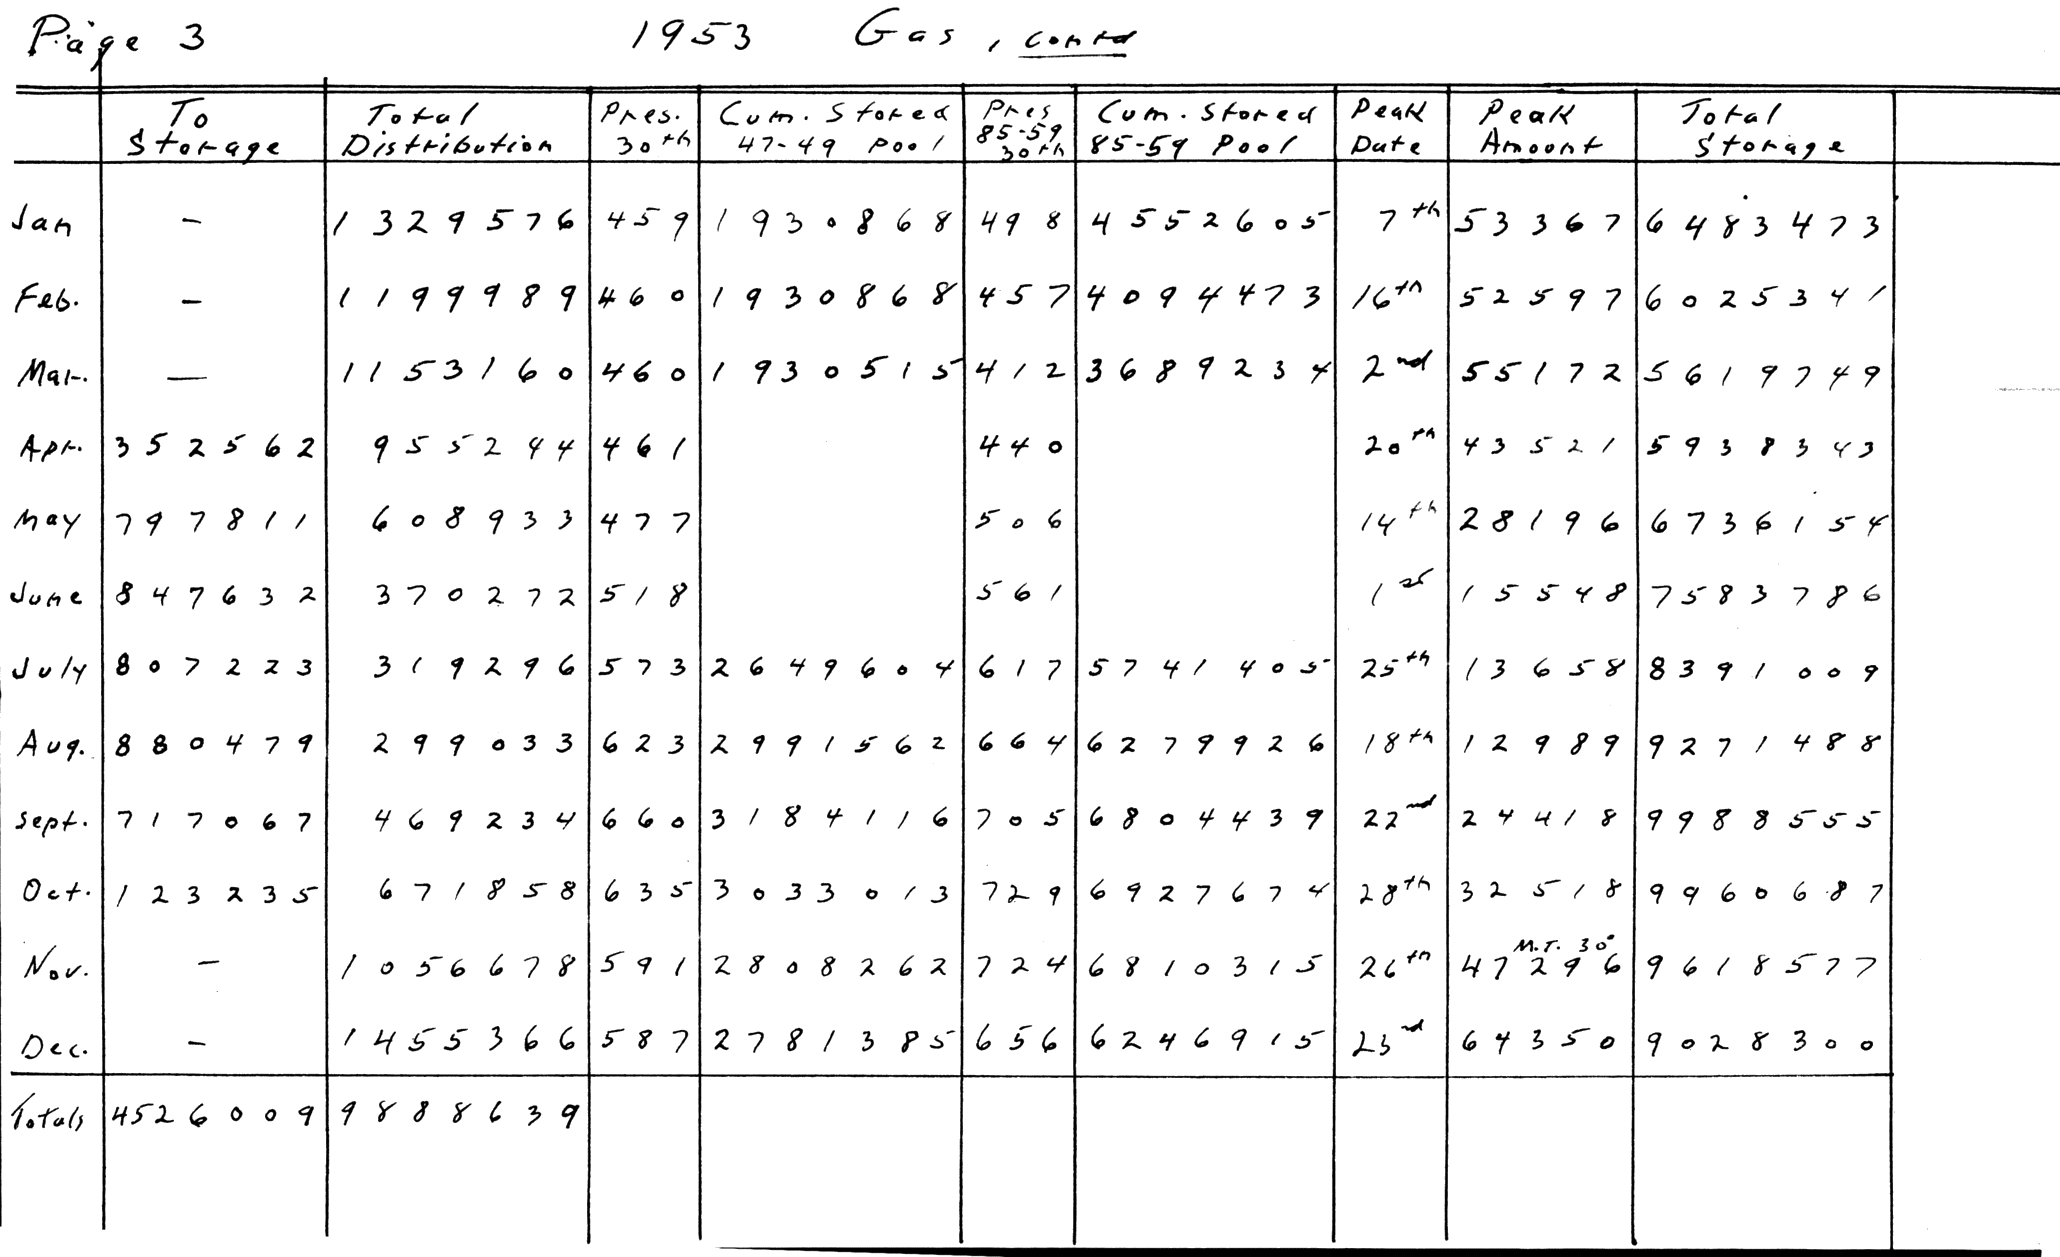 Page 3 1953 Gas, contd
To Storage Total Distribution Pres. 30th Cum. Stored 47-49 Pool Pres 85-59 30th Cum. Stored 85-59 Pool Peak Date Peak Amount Total Storage
Jan - 1329576 459 1930868 498 4552605 7th 53367 6483473
Feb. - 1199989 460 1930868 457 4094473 16th 52597 6025341
Mar. - 1153160 460 1930515 412 3689234 2nd 55172 5619749
Apr. 352562 955244 461 440 20th 43521 5938343
May 797811 608933 477 506 14th 28196 6736154
June 847632 370272 518 561 1st 15548 7583786
July 807223 319296 573 2649604 617 5741405 25th 13658 8391009
Aug. 880479 299033 623 2991562 664 6279926 18th 12989 9271488
Sept. 717067 469234 660 3184116 705 6804439 22nd 24418 9988555
Oct. 123235 671858 635 3033013 729 6927674 28th 32518 9960687
M.T. 30°
Nov. - 1056678 591 2808262 724 6810315 26th 47296 9618577
Dec. - 1455366 587 2781385 656 6246915 23rd 64350 9028300
Totals 4526009 9888639